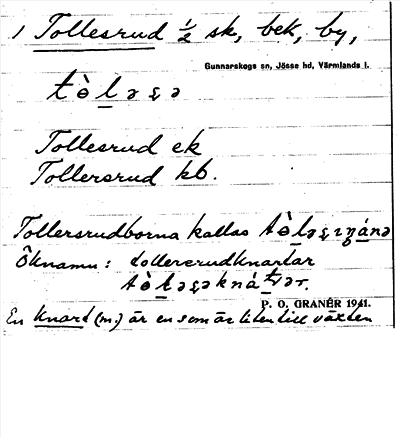 1 Tollesrud ½ sk, bek, by,
Gunnarskogs sn, Jösse hd, Värmlands l.
Tollesrud ek
Tollersrud kb.
Tollersrudborna kallas
Öknamn: tollercrudknartar
P. O. GRANÉR 1941.
En knart (m.) är en som är liten till växten